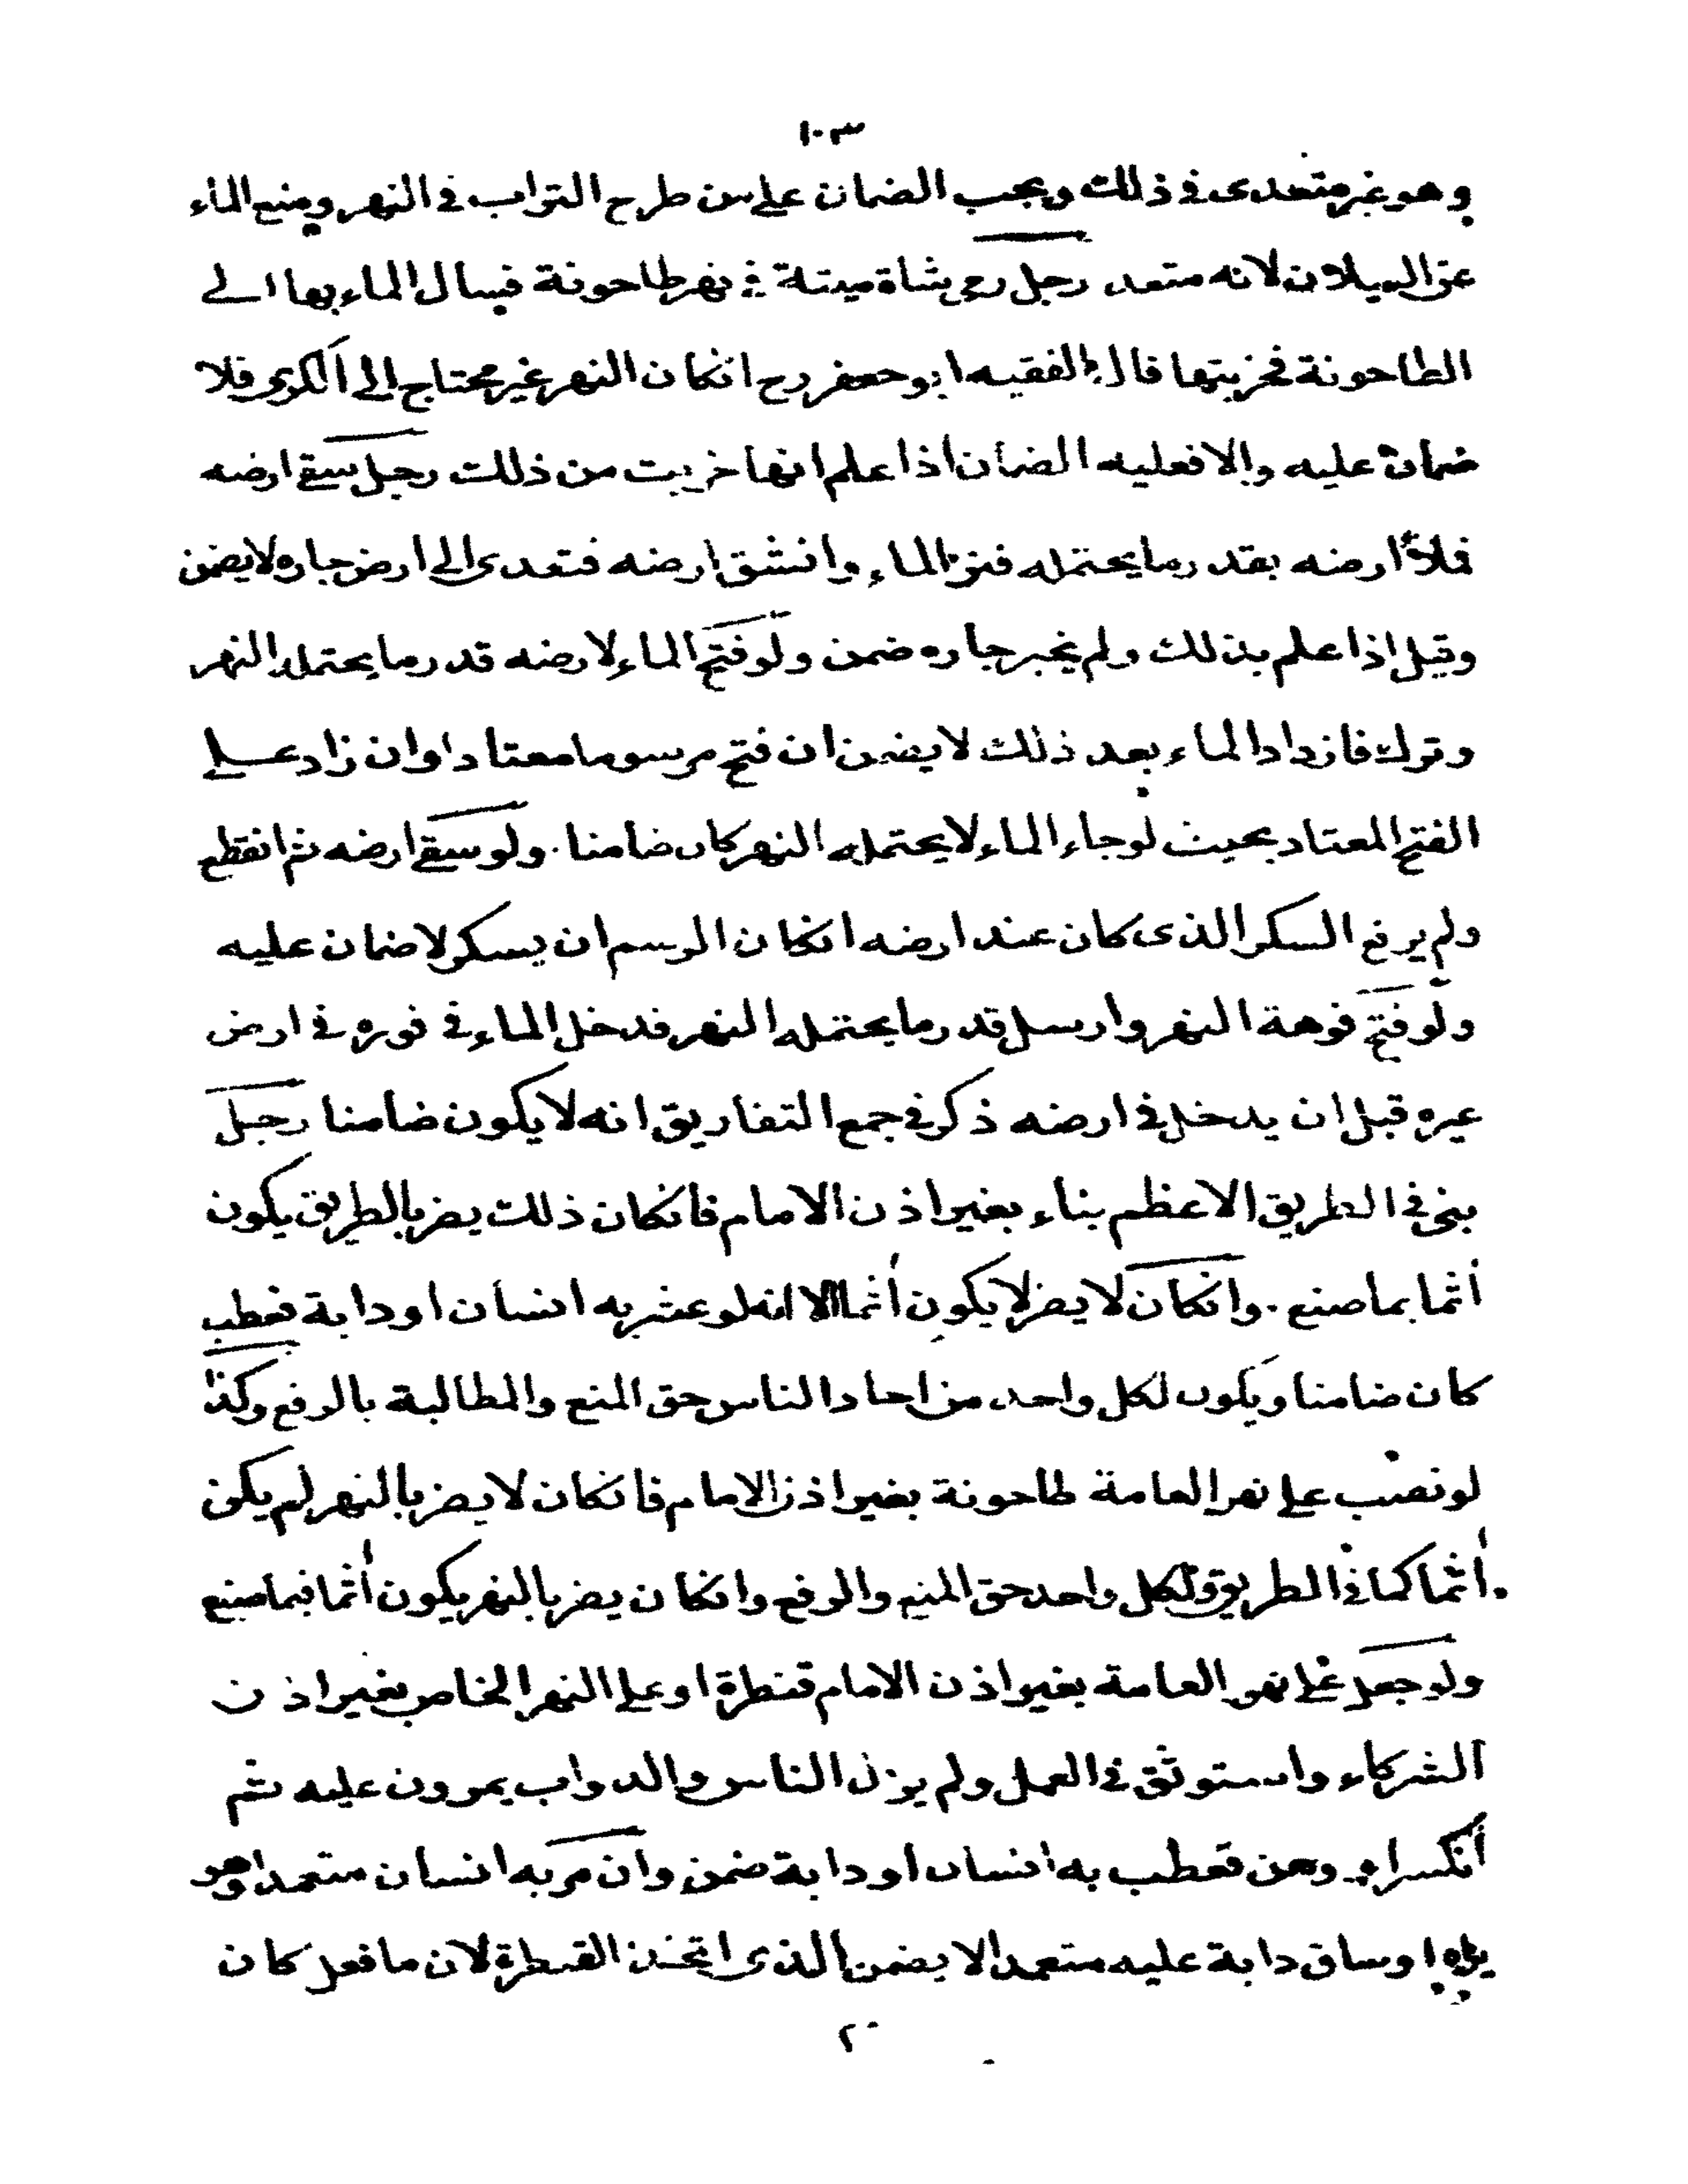 ١٠٣
وهو غير متعدى فى ذلك ويجب الضمان على من طرح التراب فى النهر ومنع الماء
عن السيلان لانه متعد رجل رمى شاة ميتة فى نهر طاحونة فسال الماء بها الى
الطاحونة فخربتها قال الفقيه ابو جعفر رح انكان النهر غير محتاج الى الكرى فلا
ضمان عليه والا فعليه الضمان اذا علم انها خربت من ذلك رجل سقى ارضه
فملأ ارضه بقدر ما يحتمله فنز الماء وانشق ارضه فتعدى الى ارض جاره لا يضمن
وقيل اذا علم بذلك ولم يخبر جاره ضمن ولو فتح الماء لارضه قدر ما يحتمله النهر
وترك فازداد الماء بعد ذلك لا يضمن ان فتح مرسوما معتادا وان زاد على
الفتح المعتاد بحيث لو جاء الماء لا يحتمله النهر كان ضامنا . ولو سقى ارضه ثم انقطع
ولم يرفع السكر الذى كان عند ارضه انكان الرسم ان يسكر لا ضمان عليه
ولو فتح فوهة النهر وارسل قدر ما يحتمله النهر فدخل الماء فى فوره فى ارض
غيره قبل ان يدخل فى ارضه ذكر فى جمع التفاريق انه لا يكون ضامنا رجل
بنى فى الطريق الاعظم بناء بغير اذن الامام فانكان ذلك يضر بالطريق يكون
أثما بما صنع . وانكان لا يضر لا يكون أثما الا انه لو عثر به انسان او دابة فعطب
كان ضامنا ويكون لكل واحد من احاد الناس حق المنع والمطالبة بالرفع وكذا
لو نصب على نهر العامة طاحونة بغير اذن الامام فانكان لا يضر بالنهر لم يكن
أثما كما فى الطريق ولكل واحد حق المنع والرفع وانكان يضر بالنهر يكون أثما فيما صنع
ولو جعل على نهر العامة بغير اذن الامام قنطرة او على النهر الخاص بغير اذن
الشركاء واستوثق فى العمل ولم يزل الناس والدواب يمرون عليه ثم
أنكسر او وهن فعطب به انسان او دابة ضمن وان مر به انسان متعمدا وهو
يراه او ساق دابة عليه متعمدا لا يضمن الذى اتخذ القنطرة لان ما فعل كان